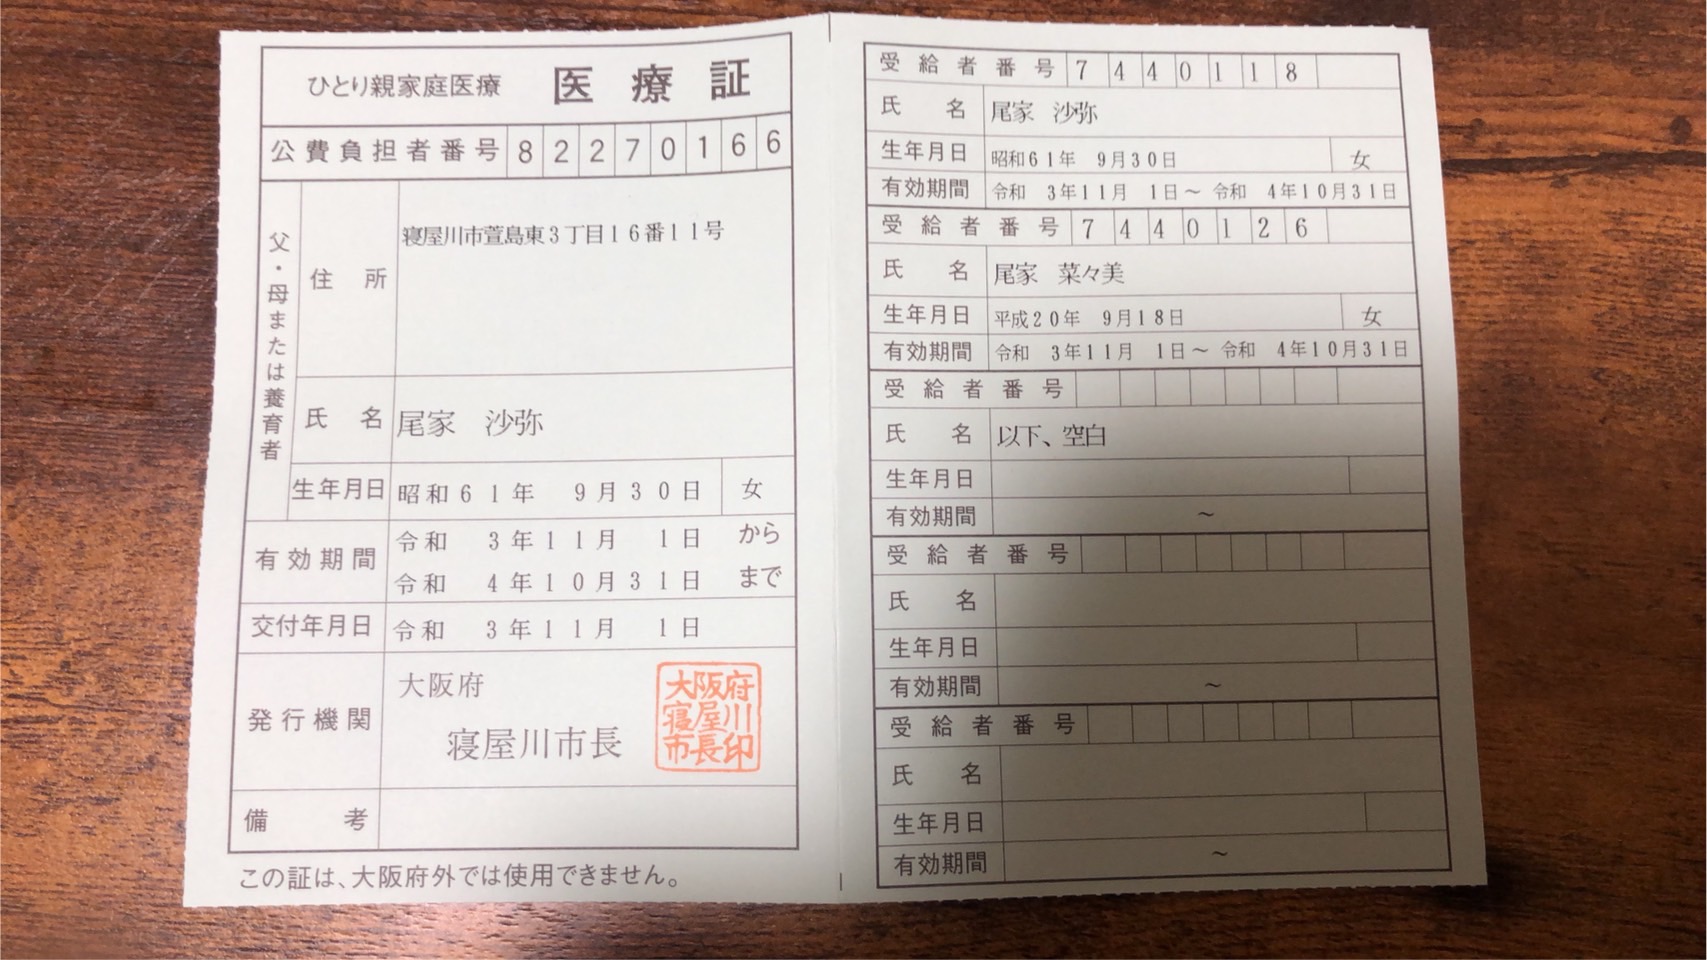 ひとり親家庭医療 医療証
公費負担者番号 82270166
父・母または養育者
住所 寝屋川市萱島東3丁目16番11号
氏名 尾家 沙弥
生年月日 昭和61年 9月30日 女
有効期間 令和 3年11月 1日 から
令和 4年10月31日 まで
交付年月日 令和 3年11月 1日
発行機関 大阪府
寝屋川市長
大阪府
寝屋川
市長印
備考
この証は、大阪府外では使用できません。
受給者番号 7440118
氏名 尾家 沙弥
生年月日 昭和61年 9月30日 女
有効期間 令和 3年11月 1日～令和 4年10月31日
受給者番号 7440126
氏名 尾家 菜々美
生年月日 平成20年 9月18日 女
有効期間 令和 3年11月 1日～令和 4年10月31日
受給者番号
氏名 以下、空白
生年月日
有効期間 ～
受給者番号
氏名
生年月日
有効期間 ～
受給者番号
氏名
生年月日
有効期間 ～